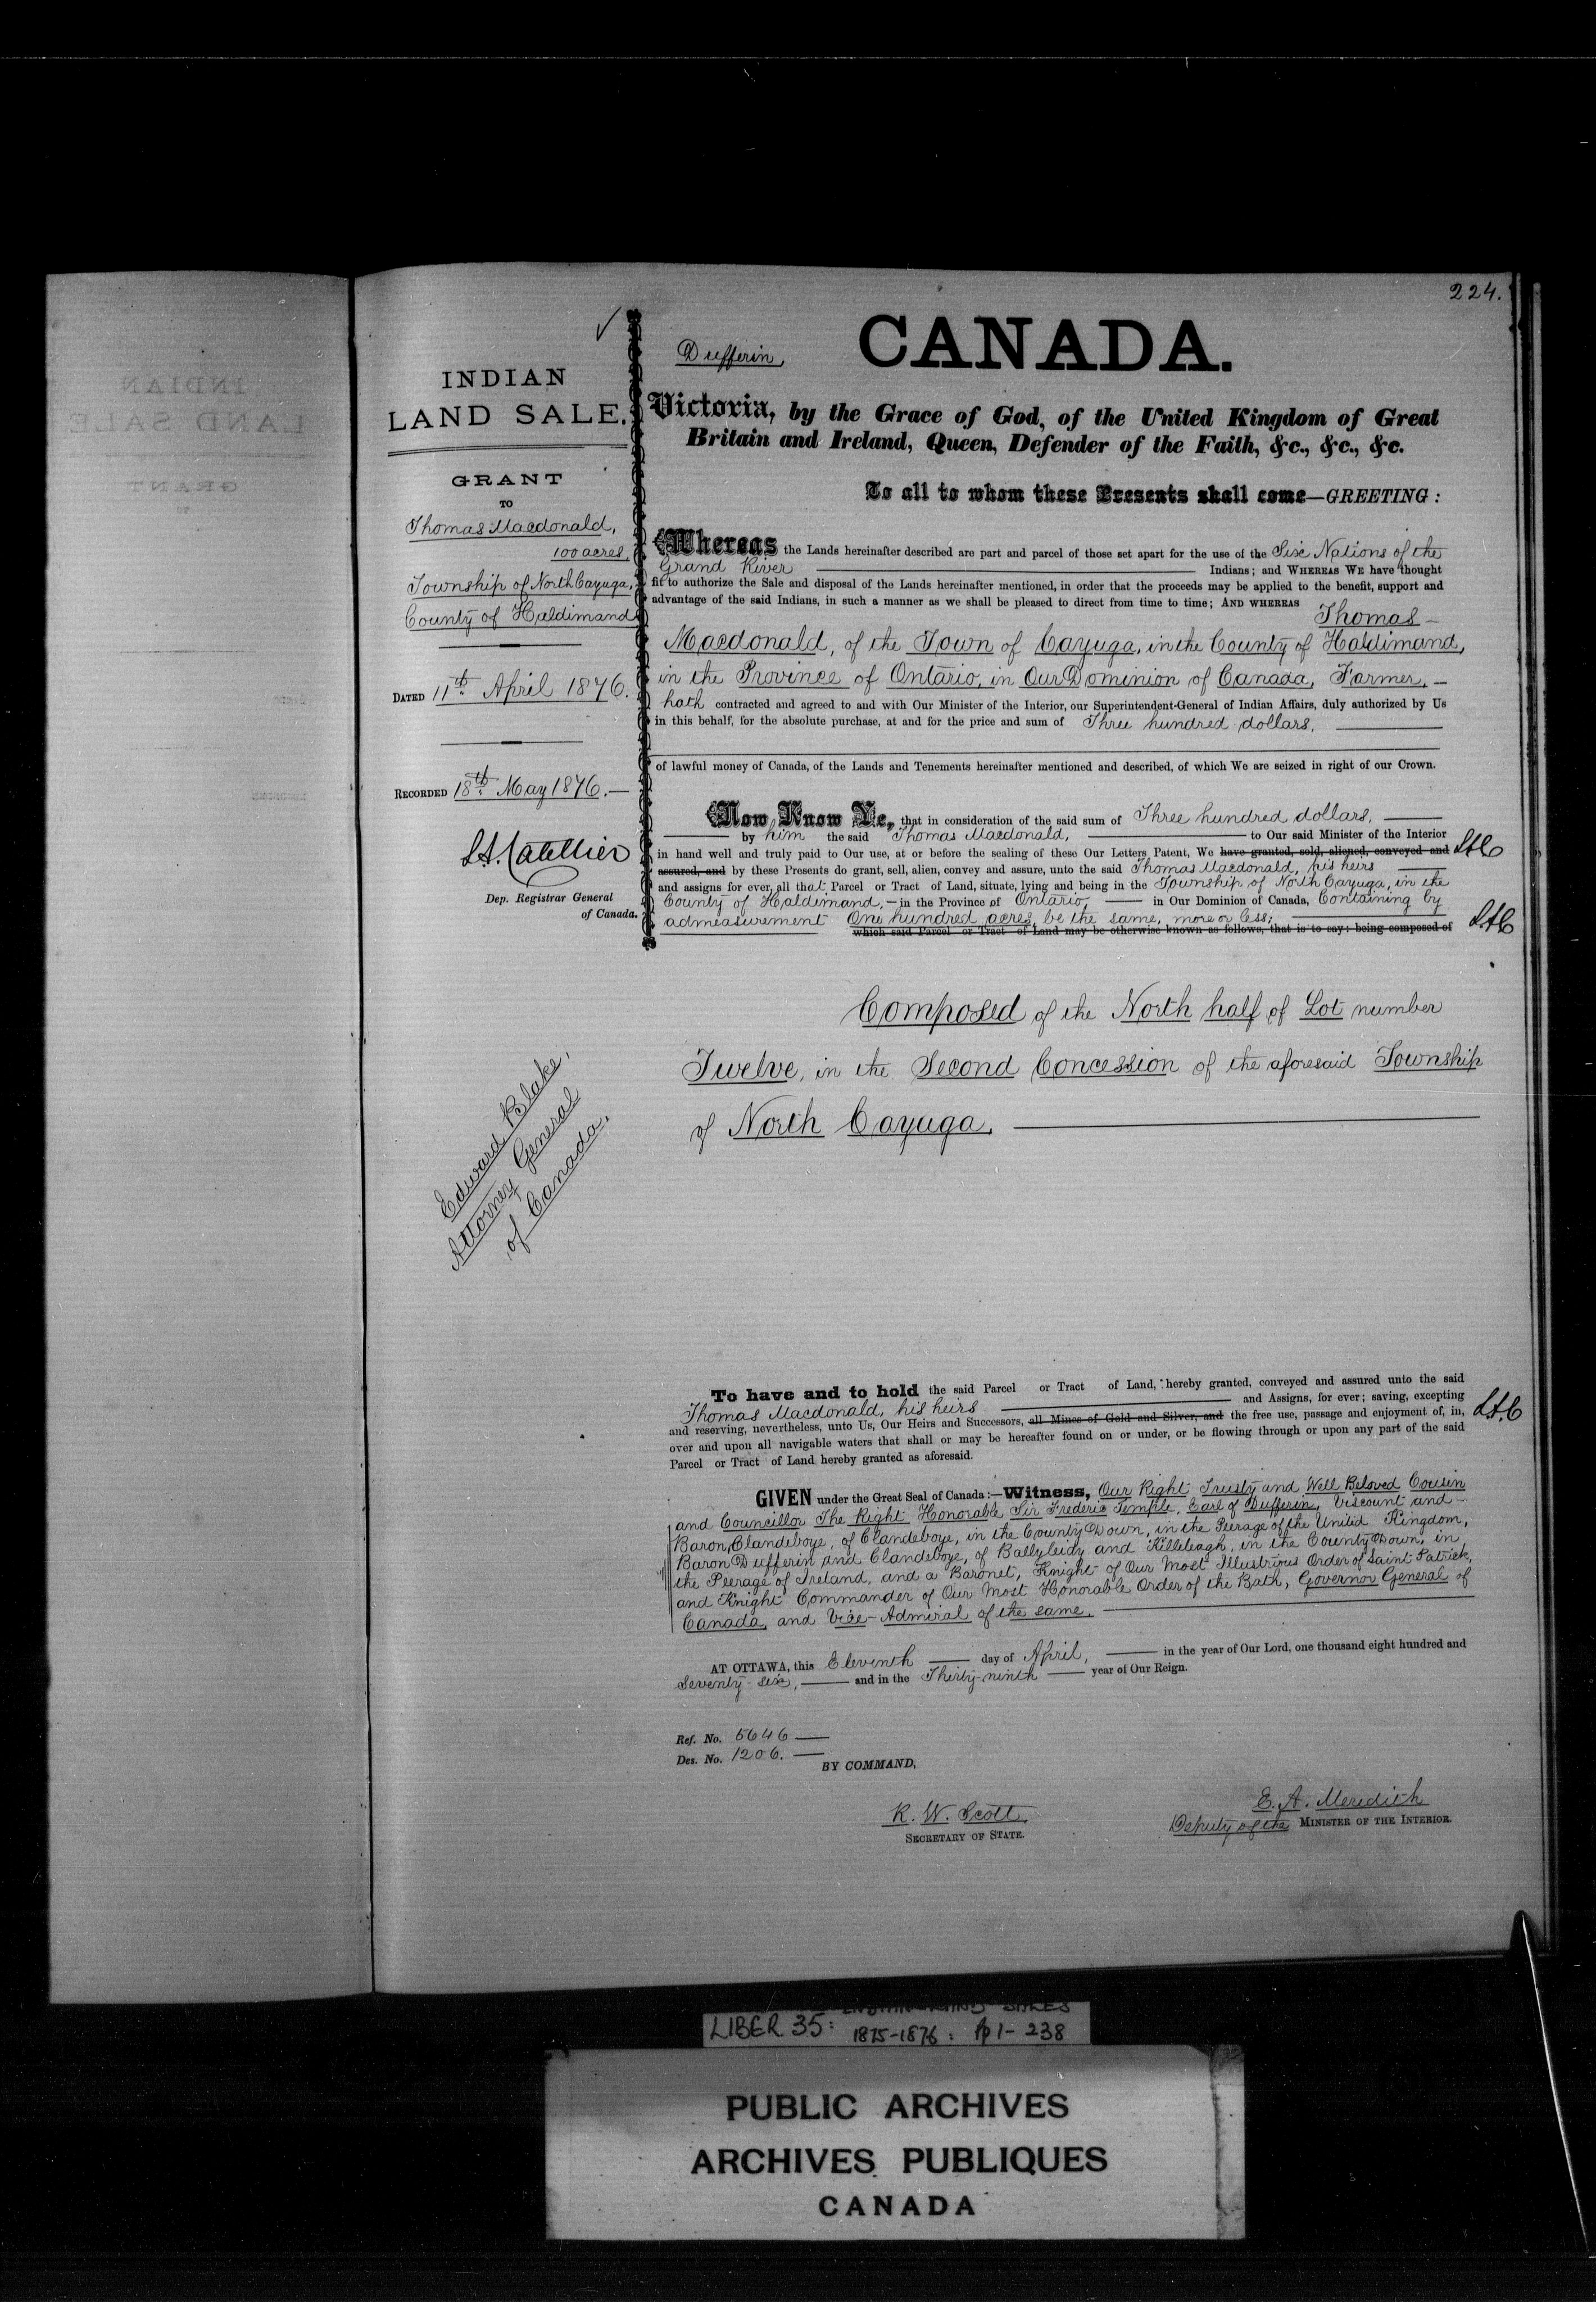 224.
INDIAN
LAND SALE.
GRANT
TO
Thomas Macdonald,
100 acres
Township of North Cayuga,
County of Haldimand
DATED 11th April 1876.
RECORDED 18th May 1876.—
L.A. Catellier
Dep. Registrar General
of Canada.
Edward Blake,
Attorney General
of Canada.
Dufferin,
CANADA.
Victoria, by the Grace of God, of the United Kingdom of Great
Britain and Ireland, Queen, Defender of the Faith, &c., &c., &c.
To all to whom these Presents shall come—GREETING:
Whereas the Lands hereinafter described are part and parcel of those set apart for the use of the Six Nations of the
Grand River Indians; and WHEREAS WE have thought
fit to authorize the Sale and disposal of the Lands hereinafter mentioned, in order that the proceeds may be applied to the benefit, support and
advantage of the said Indians, in such a manner as we shall be pleased to direct from time to time; AND WHEREAS Thomas
Macdonald, of the Town of Cayuga, in the County of Haldimand,
in the Province of Ontario, in Our Dominion of Canada, Farmer, —
hath contracted and agreed to and with Our Minister of the Interior, our Superintendent-General of Indian Affairs, duly authorized by Us
in this behalf, for the absolute purchase, at and for the price and sum of Three hundred dollars,
of lawful money of Canada, of the Lands and Tenements hereinafter mentioned and described, of which We are seized in right of our Crown.
Now Know Ye, that in consideration of the said sum of Three hundred dollars,
by him the said Thomas Macdonald, to Our said Minister of the Interior
in hand well and truly paid to Our use, at or before the sealing of these Our Letters Patent, We have granted, sold, aliened, conveyed and L.A.C
assured, and by these Presents do grant, sell, alien, convey and assure, unto the said Thomas Macdonald, his heirs
and assigns for ever, all that Parcel or Tract of Land, situate, lying and being in the Township of North Cayuga, in the
County of Haldimand, — in the Province of Ontario, in Our Dominion of Canada, Containing by
admeasurement One hundred acres, be the same, more or less;
which said Parcel or Tract of Land may be otherwise known as follows, that is to say: being composed of L.A.C
Composed of the North half of Lot number
Twelve, in the Second Concession of the aforesaid Township
of North Cayuga.
To have and to hold the said Parcel or Tract of Land, hereby granted, conveyed and assured unto the said
Thomas Macdonald, his heirs and Assigns, for ever; saving, excepting
and reserving, nevertheless, unto Us, Our Heirs and Successors, all Mines of Gold and Silver, and the free use, passage and enjoyment of, in, L.A.C
over and upon all navigable waters that shall or may be hereafter found on or under, or be flowing through or upon any part of the said
Parcel or Tract of Land hereby granted as aforesaid.
GIVEN under the Great Seal of Canada:—Witness, Our Right Trusty and Well Beloved Cousin
and Councillor The Right Honorable Sir Frederic Temple, Earl of Dufferin, Viscount and —
Baron Clandeboye, of Clandeboye, in the County Down, in the Peerage of the United Kingdom,
Baron Dufferin and Clandeboye, of Ballyleidy and Killeleagh, in the County Down, in
the Peerage of Ireland, and a Baronet, Knight of Our Most Illustrious Order of Saint Patrick,
and Knight Commander of Our Most Honorable Order of the Bath, Governor General of
Canada, and Vice-Admiral of the same.
AT OTTAWA, this Eleventh day of April, in the year of Our Lord, one thousand eight hundred and
Seventy-six, and in the Thirty-ninth year of Our Reign.
Ref. No. 5646
Des. No. 1206.
BY COMMAND,
R. W. Scott,
SECRETARY OF STATE.
E. A. Meredith
Deputy of the MINISTER OF THE INTERIOR.
INDIAN LAND SALES
LIBER 35: 1875-1876: pp 1-238
PUBLIC ARCHIVES
ARCHIVES PUBLIQUES
CANADA